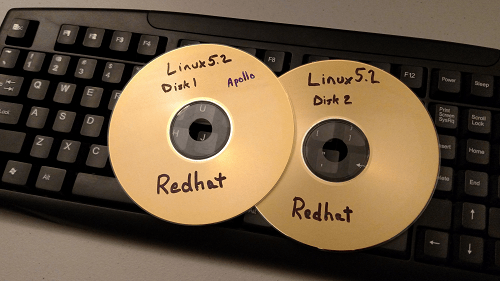 Linux 5.2
Disk 1
Apollo
Redhat
Linux 5.2
Disk 2
Redhat
F3
F4
F12
Power
Sleep
Print Screen SysRq
Scroll Lock
Insert
Home
End
Q
W
E
R
A
S
D
Z
X
C
Alt
U
H